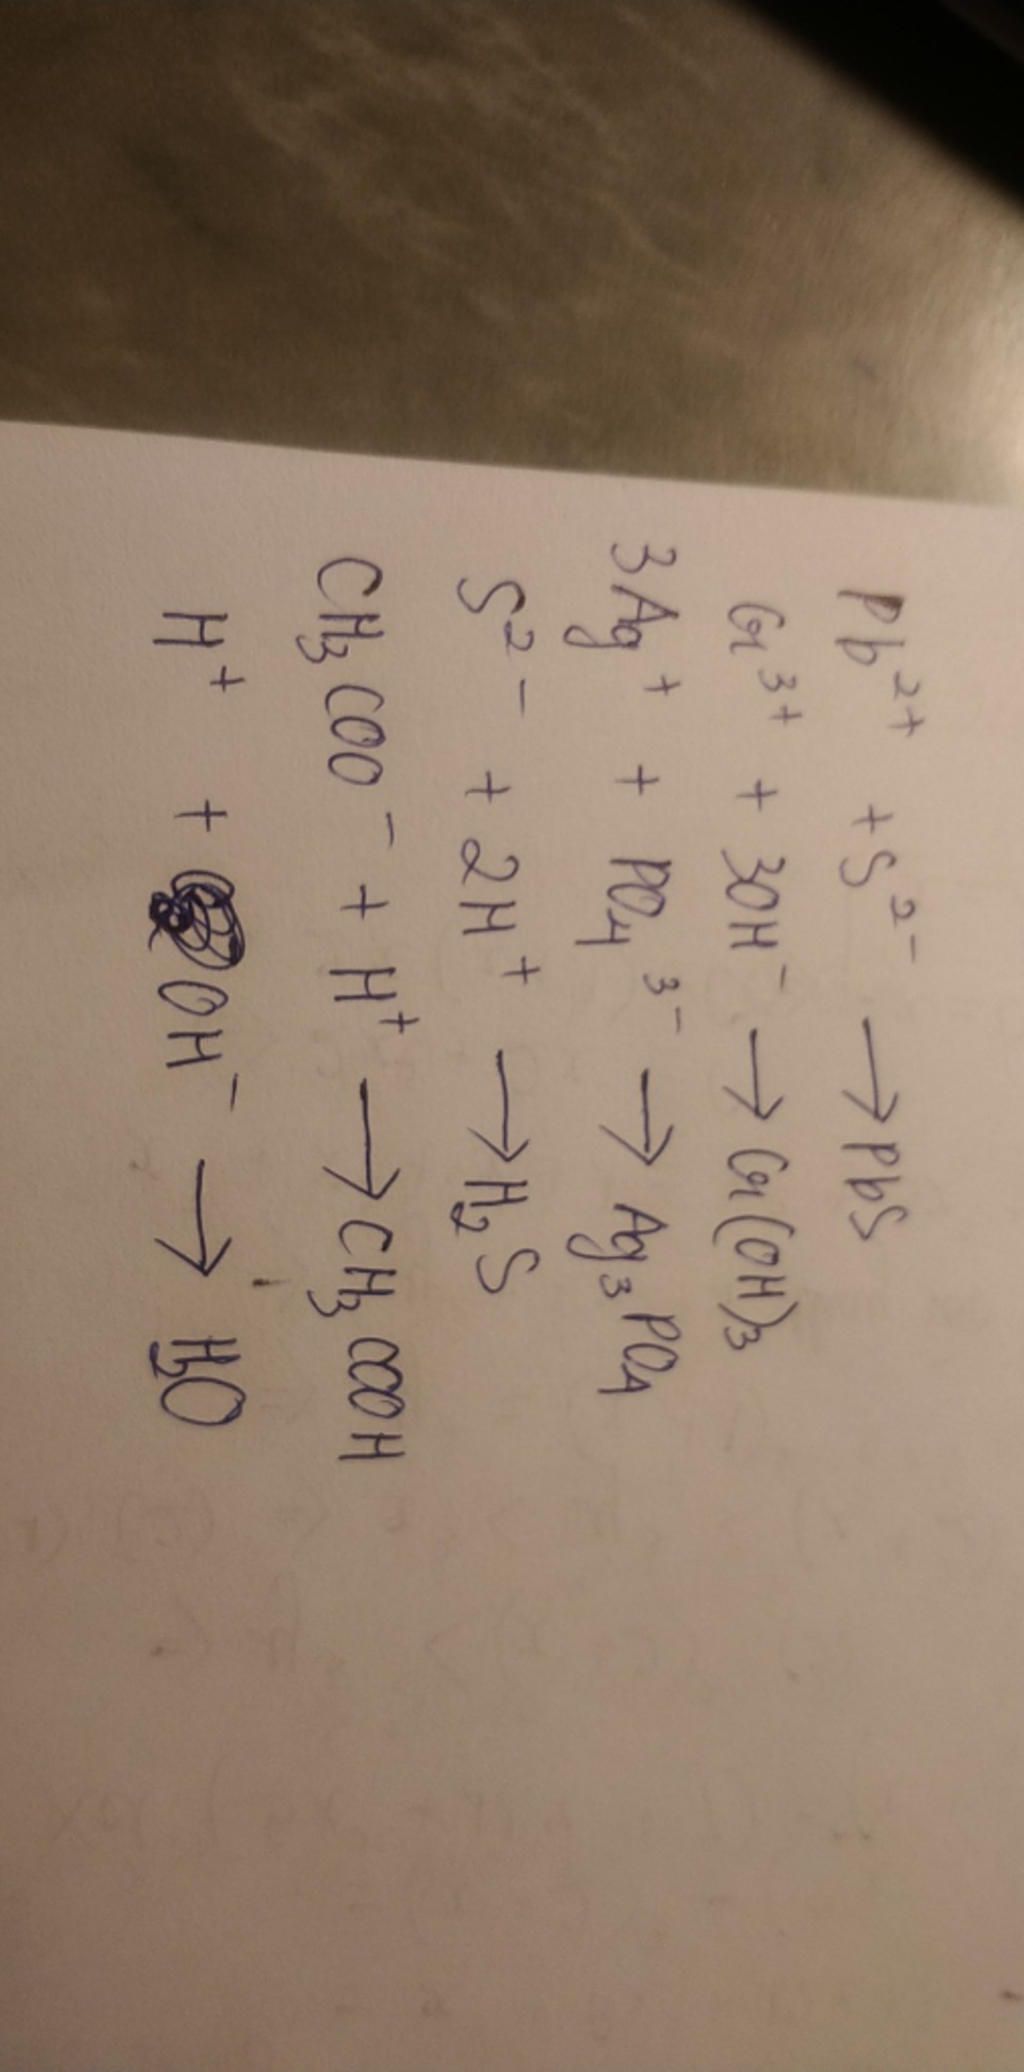 Pb²⁺ + S²⁻ → PbS
Cr³⁺ + 3OH⁻ → Cr(OH)₃
3Ag⁺ + PO₄³⁻ → Ag₃PO₄
S²⁻ + 2H⁺ → H₂S
CH₃COO⁻ + H⁺ → CH₃COOH
H⁺ + OH⁻ → H₂O